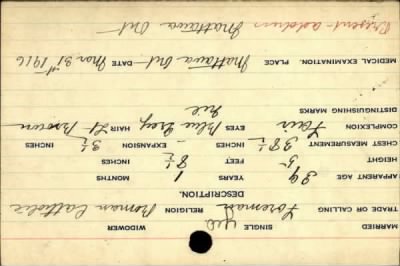 MARRIED SINGLE Yes WIDOWER
TRADE OR CALLING Foreman RELIGION Roman Catholic
DESCRIPTION.
APPARENT AGE 39 YEARS 1 MONTHS
HEIGHT 5 FEET 8½ INCHES
CHEST MEASUREMENT 38½ INCHES EXPANSION 3½ INCHES
COMPLEXION Fair EYES Blue Grey HAIR Lt Brown
DISTINGUISHING MARKS Nil
MEDICAL EXAMINATION. PLACE Mattawa Ont DATE Mar 31st 1916
Present address Mattawa Ont